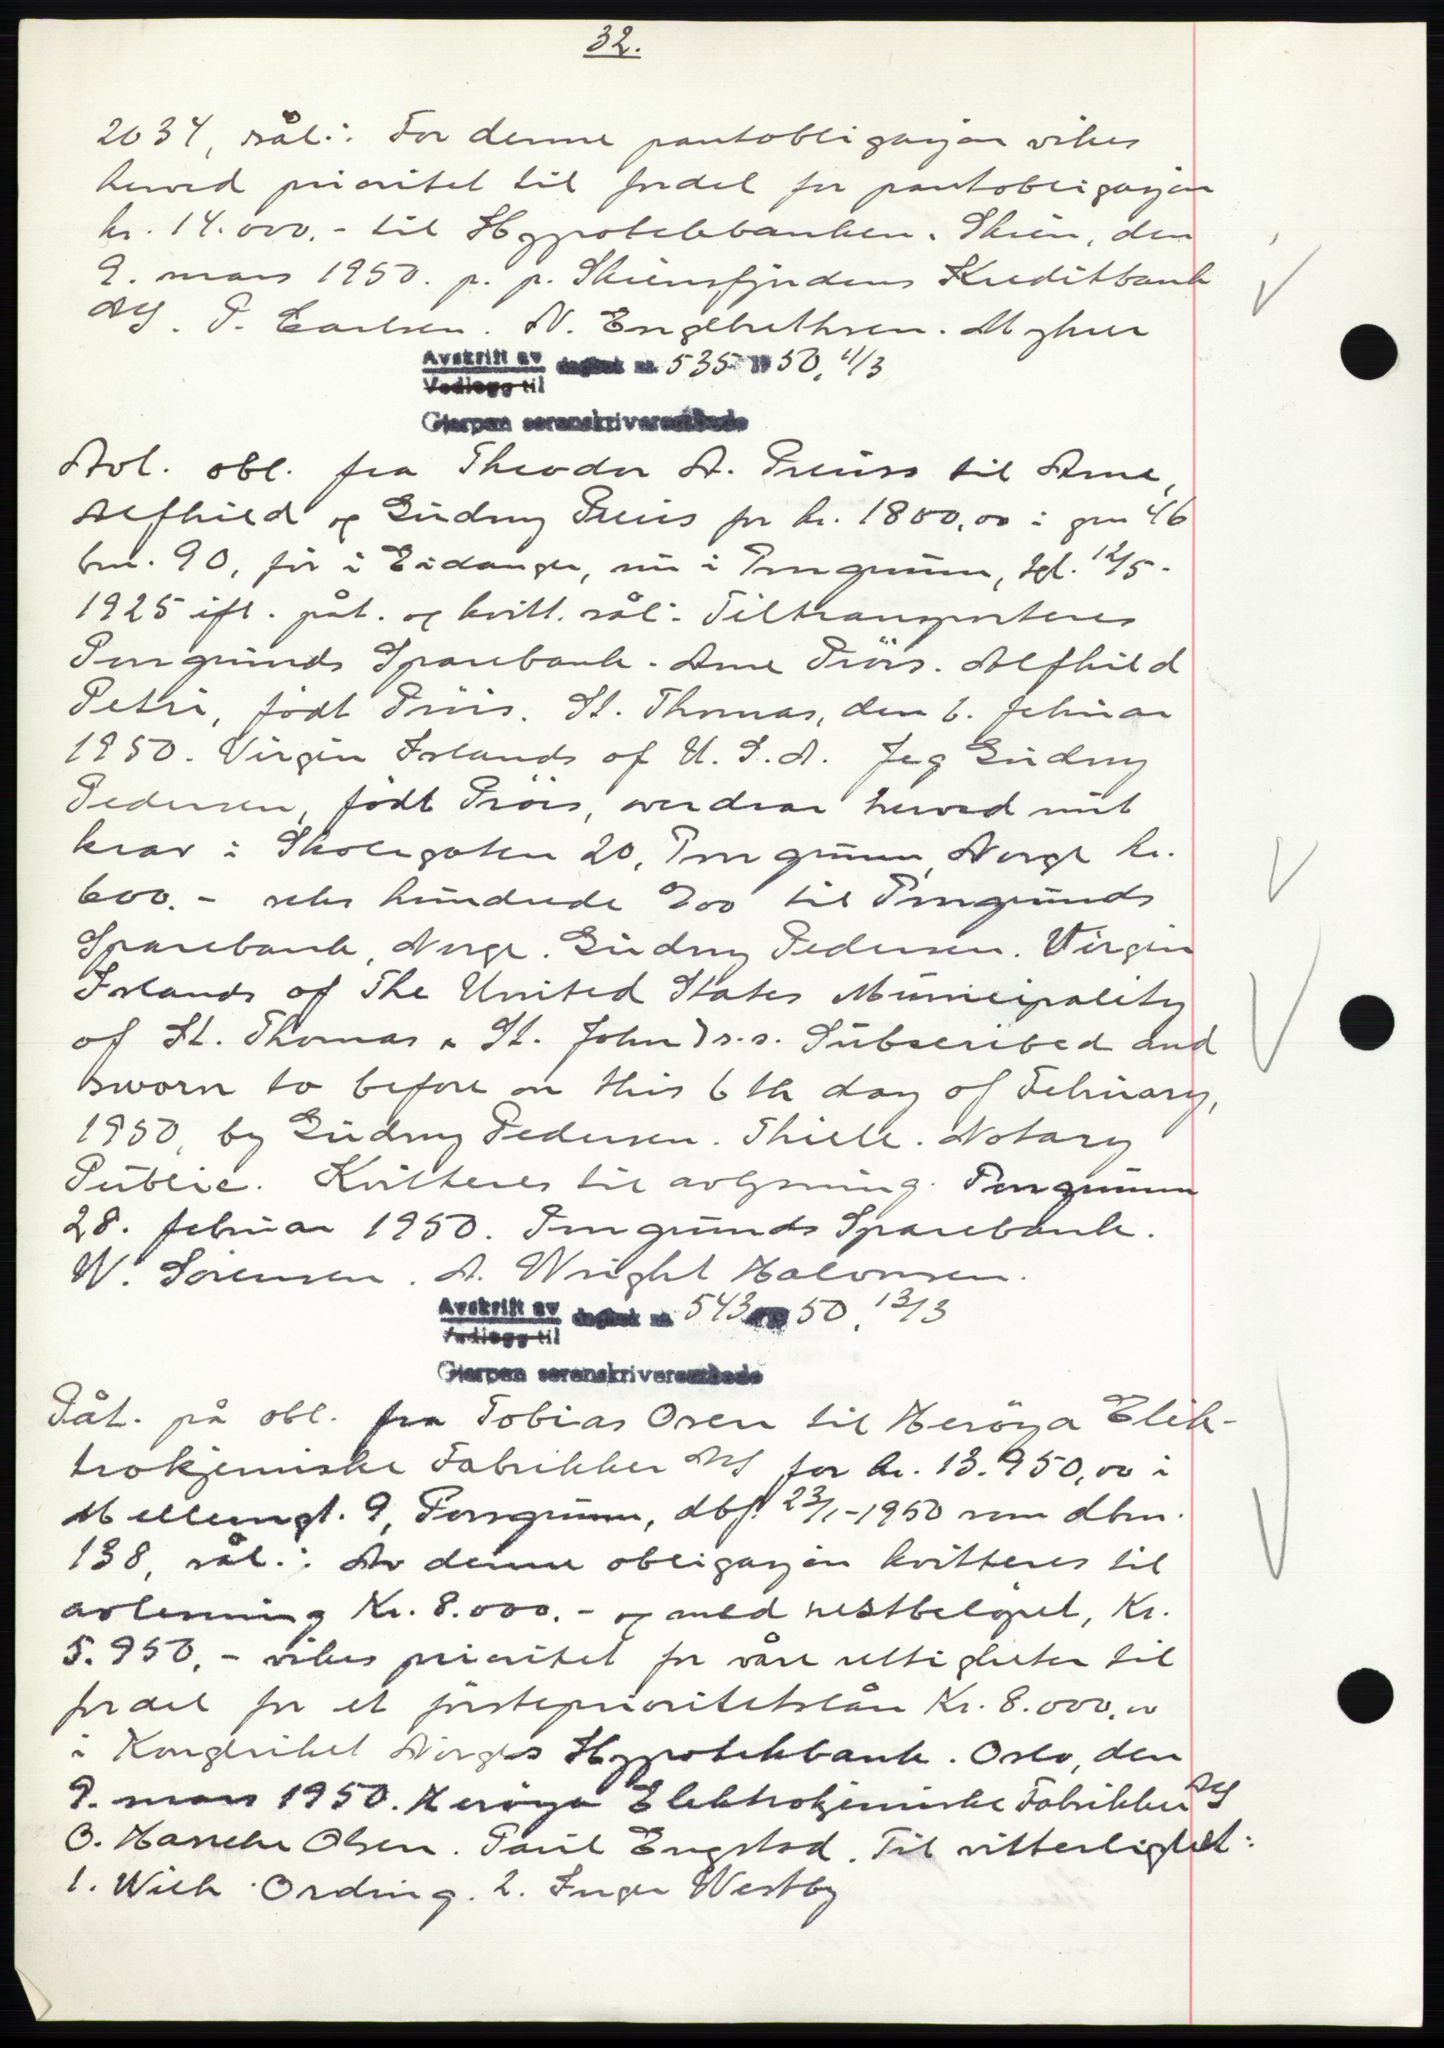 32.
2034, sål.: For denne pantobligasjon vikes
herved prioritet til fordel for pantobligasjon
kr. 14.000.- til Hypotekbanken. Skien, den
9. mars 1950. p. p. Skiensfjordens Kreditbank
A/S. P. Carlsen. N. Engelbrethsen.
Avskrift av
Vedlegg til dagbok nr. 535 19 50, 11/3
Gjerpen sorenskriverembede
Avl. obl. fra Theodor A. Preuss til Arne,
Alfhild og Gudny Preus for kr. 1800,00 i gnr 46
bnr. 90, før i Eidanger, nu i Porsgrunn, tgl. 12/5-
1925 ifl. påt. og kvitt. sål.: Tiltransporteres
Porsgrunds Sparebank. Arne Pröis. Alfhild
Petri, född Pröis. St. Thomas, den 6. februar
1950. Virgin Islands of U.S.A. Jeg Gudny
Pedersen, född Pröis, overdrar herved mit
krav i Skolegaten 20, Porsgrunn, Norge kr.
600.- seks hundrede %00 til Porsgrunds
Sparebank, Norge. Gudny Pedersen. Virgin
Islands of The United States Municipality
of St. Thomas & St. John) s.s. Subscribed and
sworn to before on this 6 th day of February,
1950, by Gudny Pedersen. Thiele. Notary
Public. Kvitteres til avlysning. Porsgrunn
28. februar 1950. Porsgrunds Sparebank.
W. Sörensen. A. Wright Halvorsen.
Avskrift av
Vedlegg til dagbok nr. 543 50, 13/3
Gjerpen sorenskriverembede
Påt. på obl. fra Tobias Osen til Heröya Elek-
trokjemiske Fabrikker A/S for kr. 13.950,00 i
Mellemgt. 9, Porsgrunn, dbf. 23/1-1950 som dbnr.
138, sål.: Av denne obligasjon kvitteres til
avlesning Kr. 8.000.- og med restbelöpet, Kr.
5.950,- vikes prioritet for våre rettigheter til
fordel for et försteprioritetslån Kr. 8.000,00
i Kongeriket Norges Hypotekbank. Oslo, den
9. mars 1950. Heröya Elektrokjemiske Fabrikker A/S
O. Hansche Olsen. Paul Engstad. Til vitterlighet:
1. Wilh. Ording. 2. Inger Westby